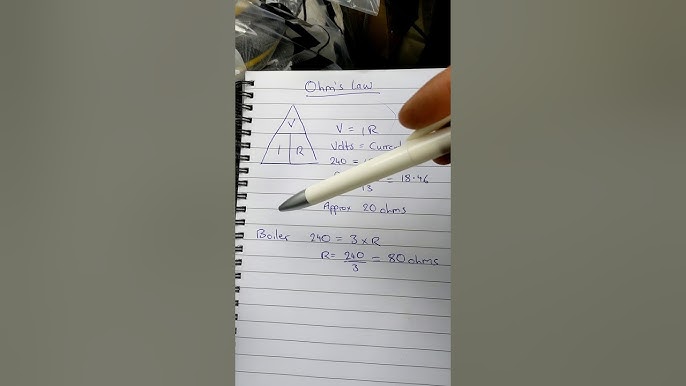 Ohm's Law
V
I R
V = IR
Volts = Current
240 =
= 18.46
13
Approx 20 ohms
Boiler 240 = 3 x R
R = 240 = 80 ohms
3